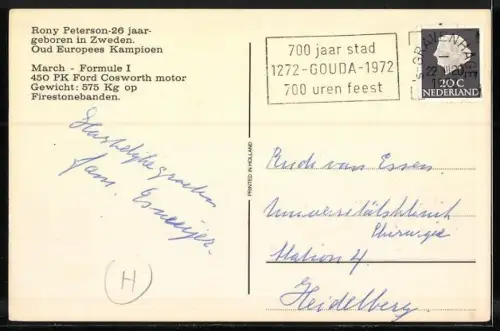 Rony Peterson-26 jaar-
geboren in Zweden.
Oud Europees Kampioen
March - Formule I
450 PK Ford Cosworth motor
Gewicht: 575 Kg op
Firestonebanden.
700 jaar stad
1272-GOUDA-1972
700 uren feest
's-GRAVENHAGE
20 C
NEDERLAND
Hartelijke groeten
fam.
PRINTED IN HOLLAND
Ruth van Essen
Universitätsklinik
Chirurgie
Station 4
Heidelberg.
H